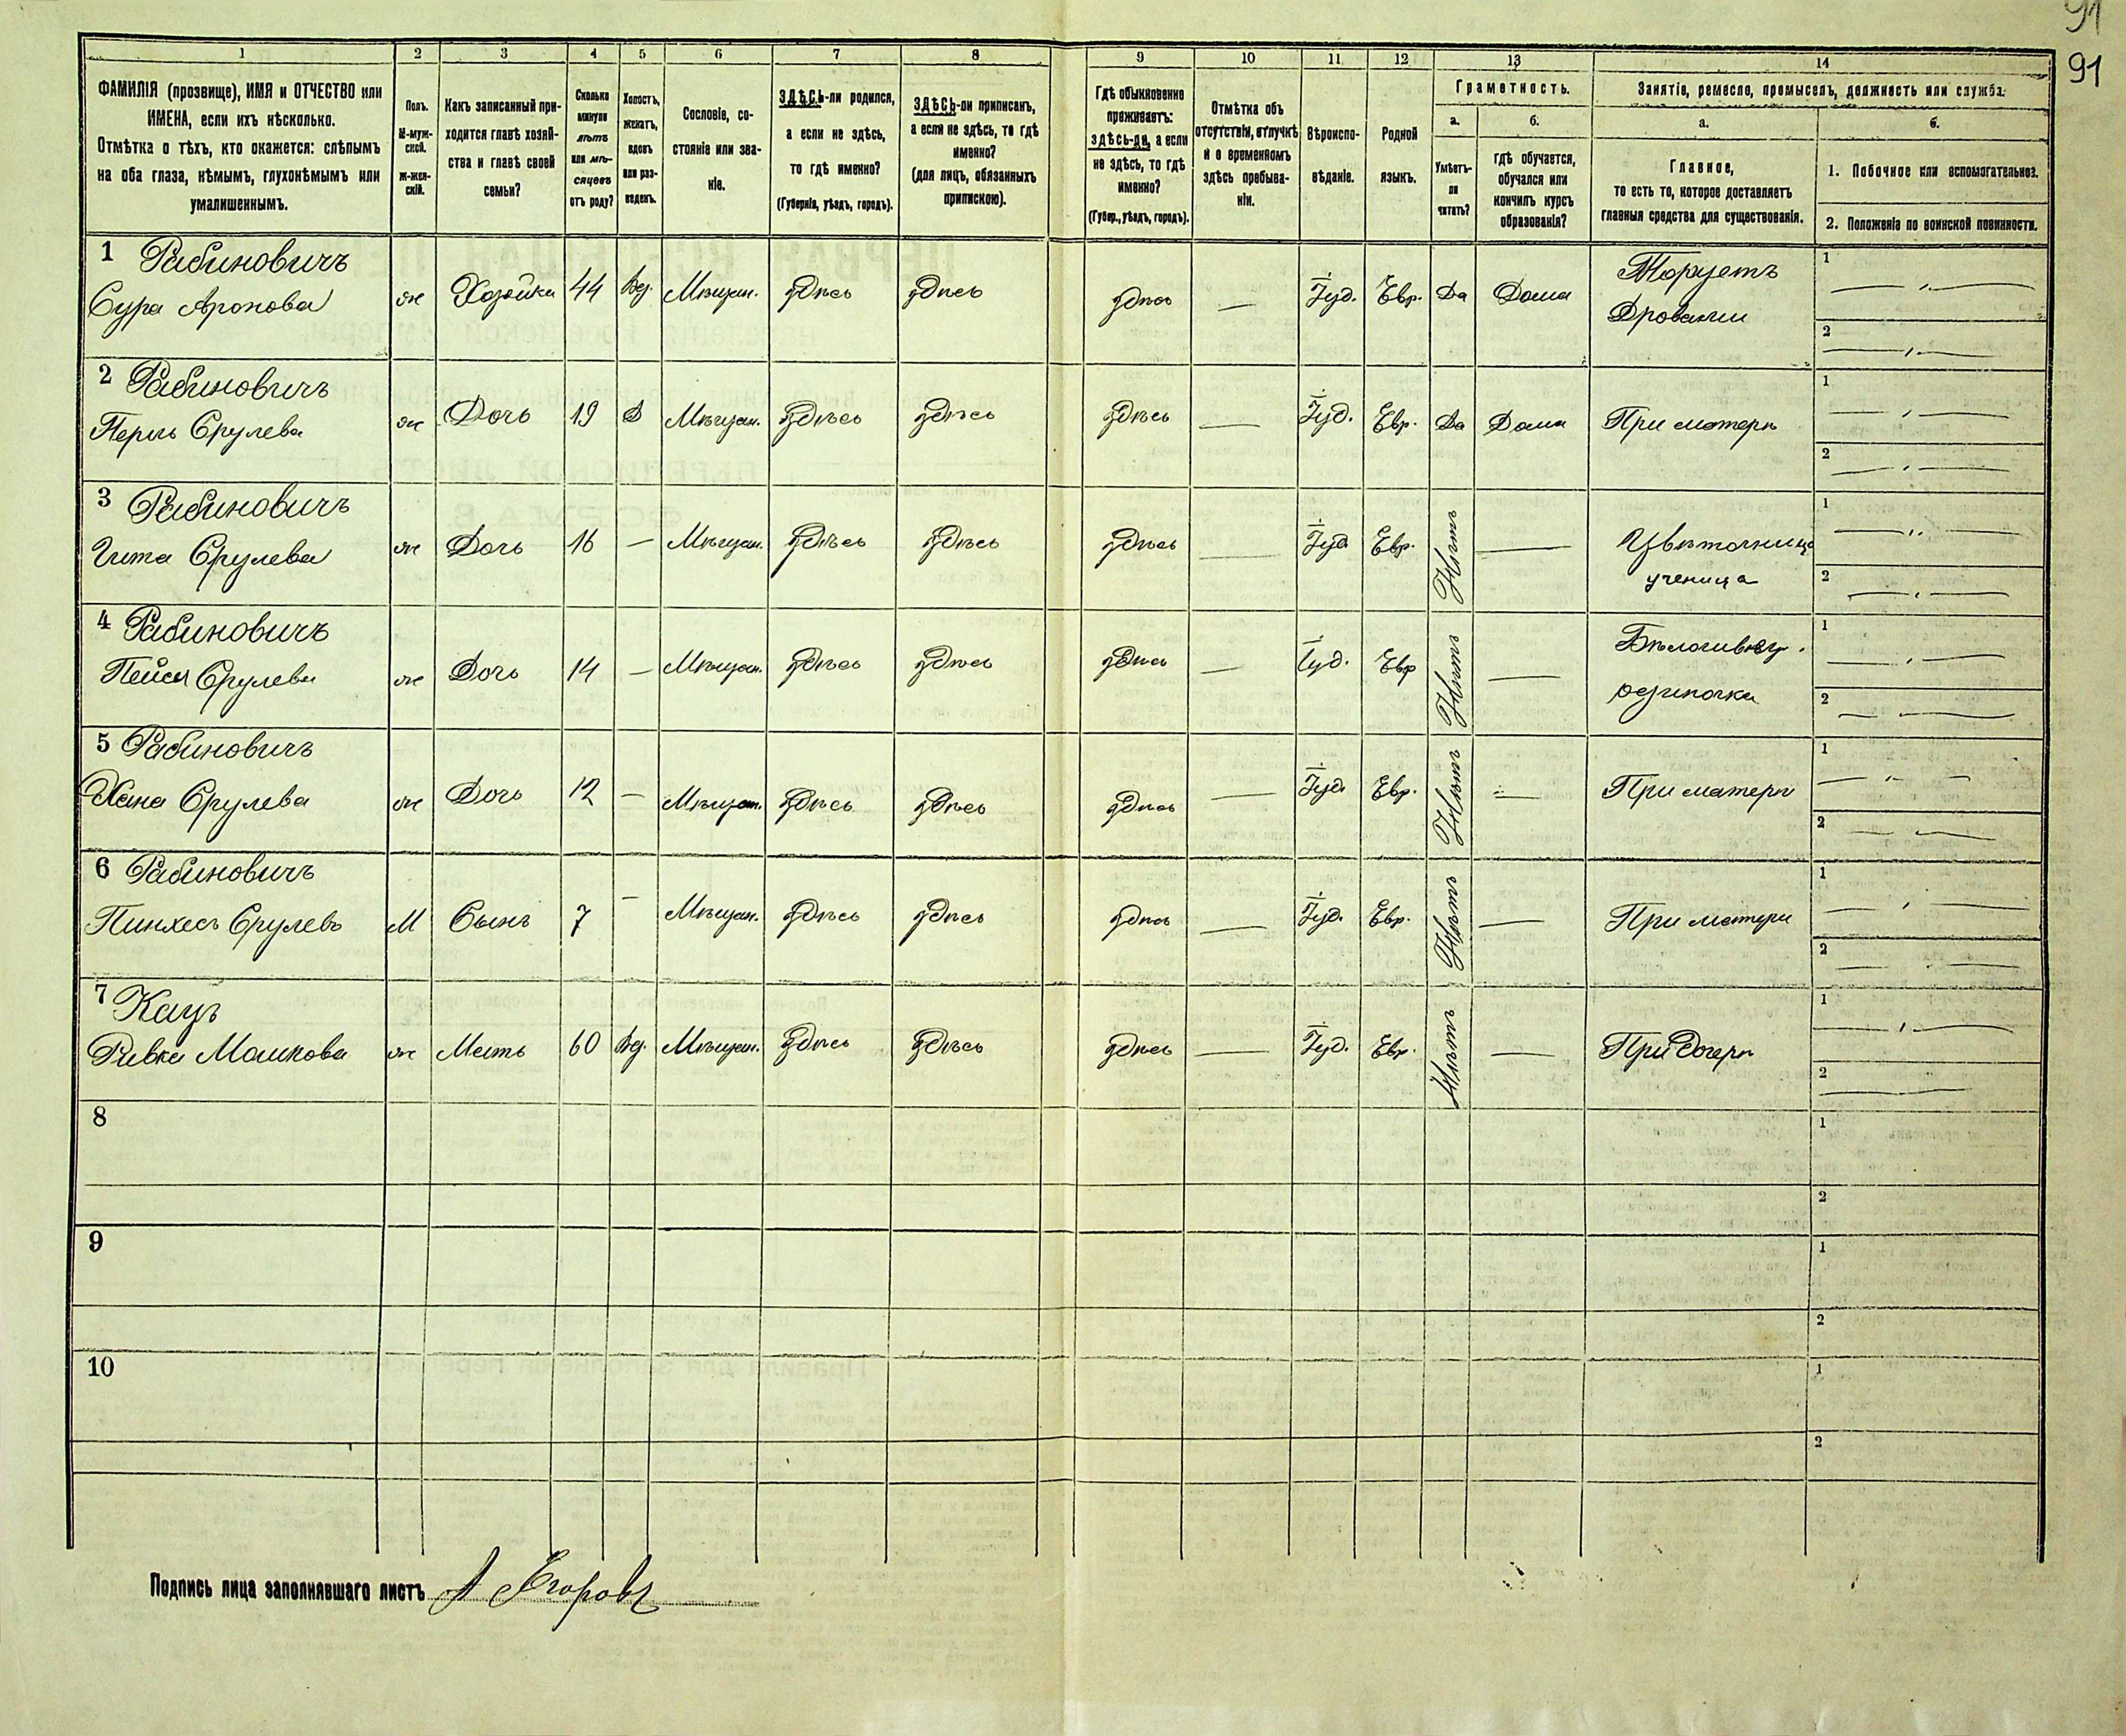 91
91
1 2 3 4 5 6 7 8 9 10 11 12 13 14
ФАМИЛІЯ (прозвище), ИМЯ и ОТЧЕСТВО или
ИМЕНА, если ихъ нѣсколько.
Отмѣтка о тѣхъ, кто окажется: слѣпымъ
на оба глаза, нѣмымъ, глухонѣмымъ или
умалишеннымъ.
Полъ.
М-муж-
ской.
ж-жен-
скій.
Какъ записанный при-
ходится главѣ хозяй-
ства и главѣ своей
семьи?
Сколько
минуло
лѣтъ
или мѣ-
сяцевъ
отъ роду?
Холостъ,
женатъ,
вдовъ
или раз-
веденъ.
Сословіе, со-
стояніе или зва-
ніе.
ЗДѢСЬ-ли родился,
а если не здѣсь,
то гдѣ именно?
(Губернія, уѣздъ, городъ).
ЗДѢСЬ-ли приписанъ,
а если не здѣсь, то гдѣ
именно?
(для лицъ, обязанныхъ
припискою).
Гдѣ обыкновенно
проживаетъ:
здѣсь-ли, а если
не здѣсь, то гдѣ
именно?
(Губер., уѣздъ, городъ).
Отмѣтка объ
отсутствіи, отлучкѣ
и о временномъ
здѣсь пребыва-
ніи.
Вѣроиспо-
вѣданіе.
Родной
языкъ.
Грамотность.
а.
Умѣетъ-
ли
читать?
б.
гдѣ обучается,
обучался или
кончилъ курсъ
образованія?
Занятіе, ремесло, промыселъ, должность или служба.
а.
Главное,
то есть то, которое доставляетъ
главныя средства для существованія.
б.
1. Побочное или вспомогательное.
2. Положеніе по воинской повинности.
1 Рабиновичъ
Сура Аронова ж Хозяйка 44 Вд. Мѣщан. Здѣсь Здѣсь Здѣсь — Іуд. Евр. Да Дома Торгуетъ
Дровами
1
2
2 Рабиновичъ
Перль Срулева ж Дочь 19 Д Мѣщан. Здѣсь Здѣсь Здѣсь — Іуд. Евр. Да Дома При матери
1
2
3 Рабиновичъ
Гита Срулева ж Дочь 16 — Мѣщан. Здѣсь Здѣсь Здѣсь — Іуд Евр. Нѣтъ — Цвѣточница
ученица
1
2
4 Рабиновичъ
Пейся Срулева ж Дочь 14 — Мѣщан. Здѣсь Здѣсь Здѣсь — Іуд. Евр Нѣтъ —
1
2
5 Рабиновичъ
Хана Срулева ж Дочь 12 — Мѣщан. Здѣсь Здѣсь Здѣсь — Іуд. Евр. Нѣтъ — При матери
1
2
6 Рабиновичъ
Пинхесъ Срулевъ М Сынъ 7 — Мѣщан. Здѣсь Здѣсь Здѣсь — Іуд. Евр. Нѣтъ — При матери
1
2
7 Кацъ
Ривка Мошкова ж Мать 60 Вд. Мѣщан. Здѣсь Здѣсь Здѣсь — Іуд. Евр. Нѣтъ — При дочери
1
2
8
1
2
9
1
2
10
1
2
Подпись лица заполнявшаго листъ А Егоровъ